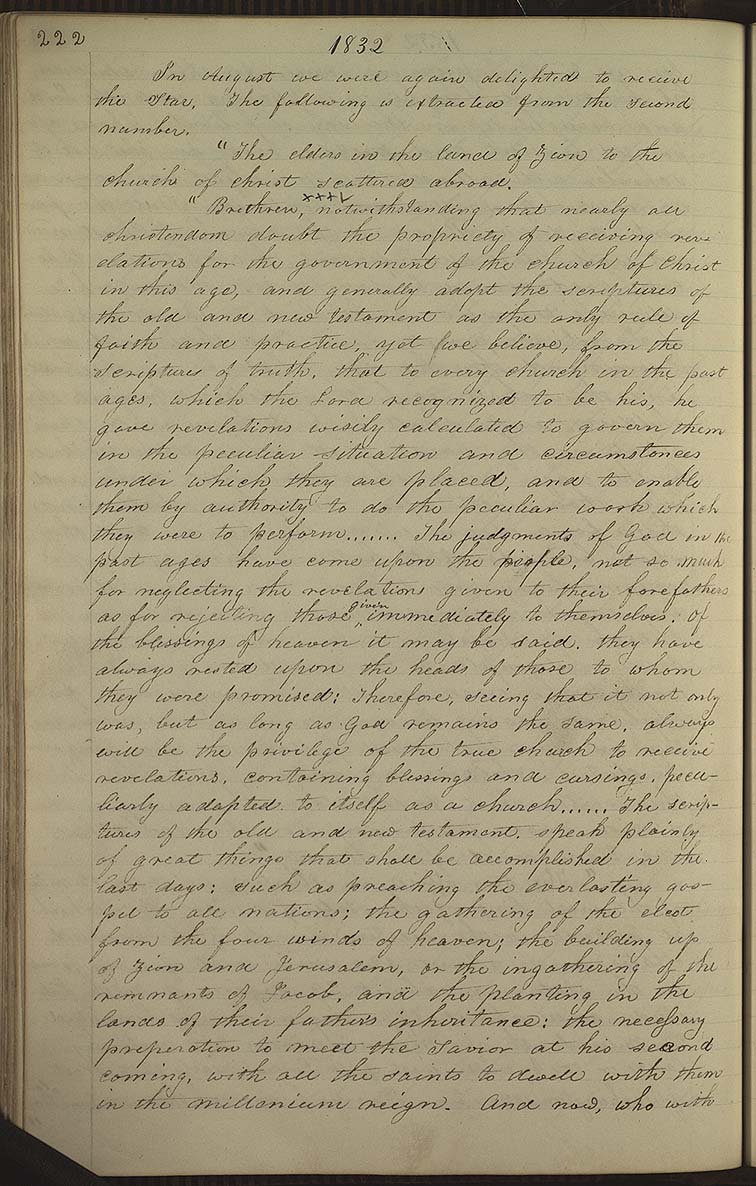 222
1832
In August we were again delighted to receive
the Star, The following is extracted from the second
number.
"The elders in the land of Zion to the
church of christ scattered abroad.
"Brethren, notwithstanding that nearly all
christendom doubt the propriety of receiving reve-
elations for the government of the church of Christ
in this age, and generally adopt the scriptures of
the old and new testament as the only rule of
faith and practice, yet we believe, from the
scriptures of truth, that to every church in the past
ages, which the Lord recognized to be his, he
gave revelations wisily calculated to govern them
in the peculiar situation and circumstances
under which they are placed, and to enable
them by authority to do the peculiar work which
they were to perform....... The judgments of God in the
past ages have come upon the people, not so much
for neglecting the revelations given to their forefathers
as for rejecting those given immediately to themselves. Of
the blessings of heaven it may be said. they have
always rested upon the heads of those to whom
they were promised: Therefore, seeing that it not only
was, but as long as God remains the same, always
will be the privilege of the true church to receive
revelations, containing blessings and cursings, pecu-
liarly adapted to itself as a church...... The scrip-
tures of the old and new testament, speak plainly
of great things that shall be accomplished in the
last days: such as preaching the everlasting gos-
pel to all nations; the gathering of the elect
from the four winds of heaven; the building up
of Zion and Jerusalem, or the ingathering of the
remnants of Jacob, and the planting in the
lands of their father's inheritance: the necessary
preperation to meet the Savior at his second
coming, with all the saints to dwell with them
in the millenium reign. And now, who with